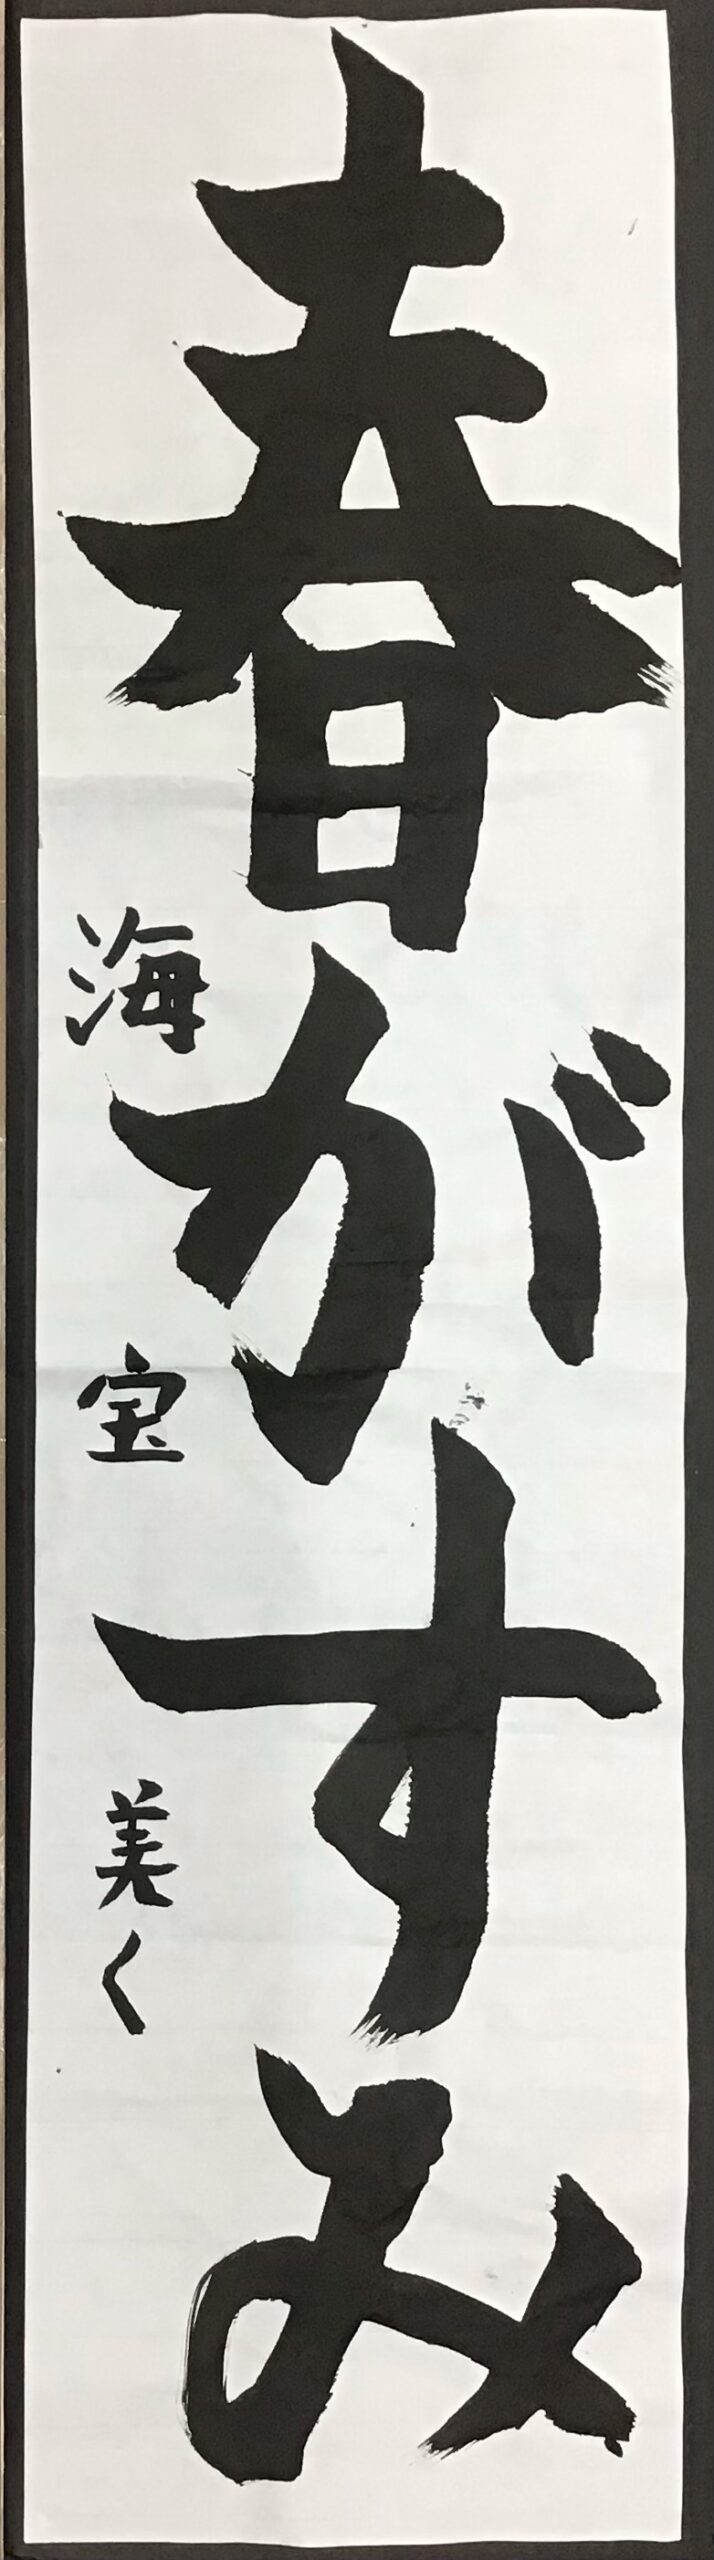 春がすみ
海宝美く